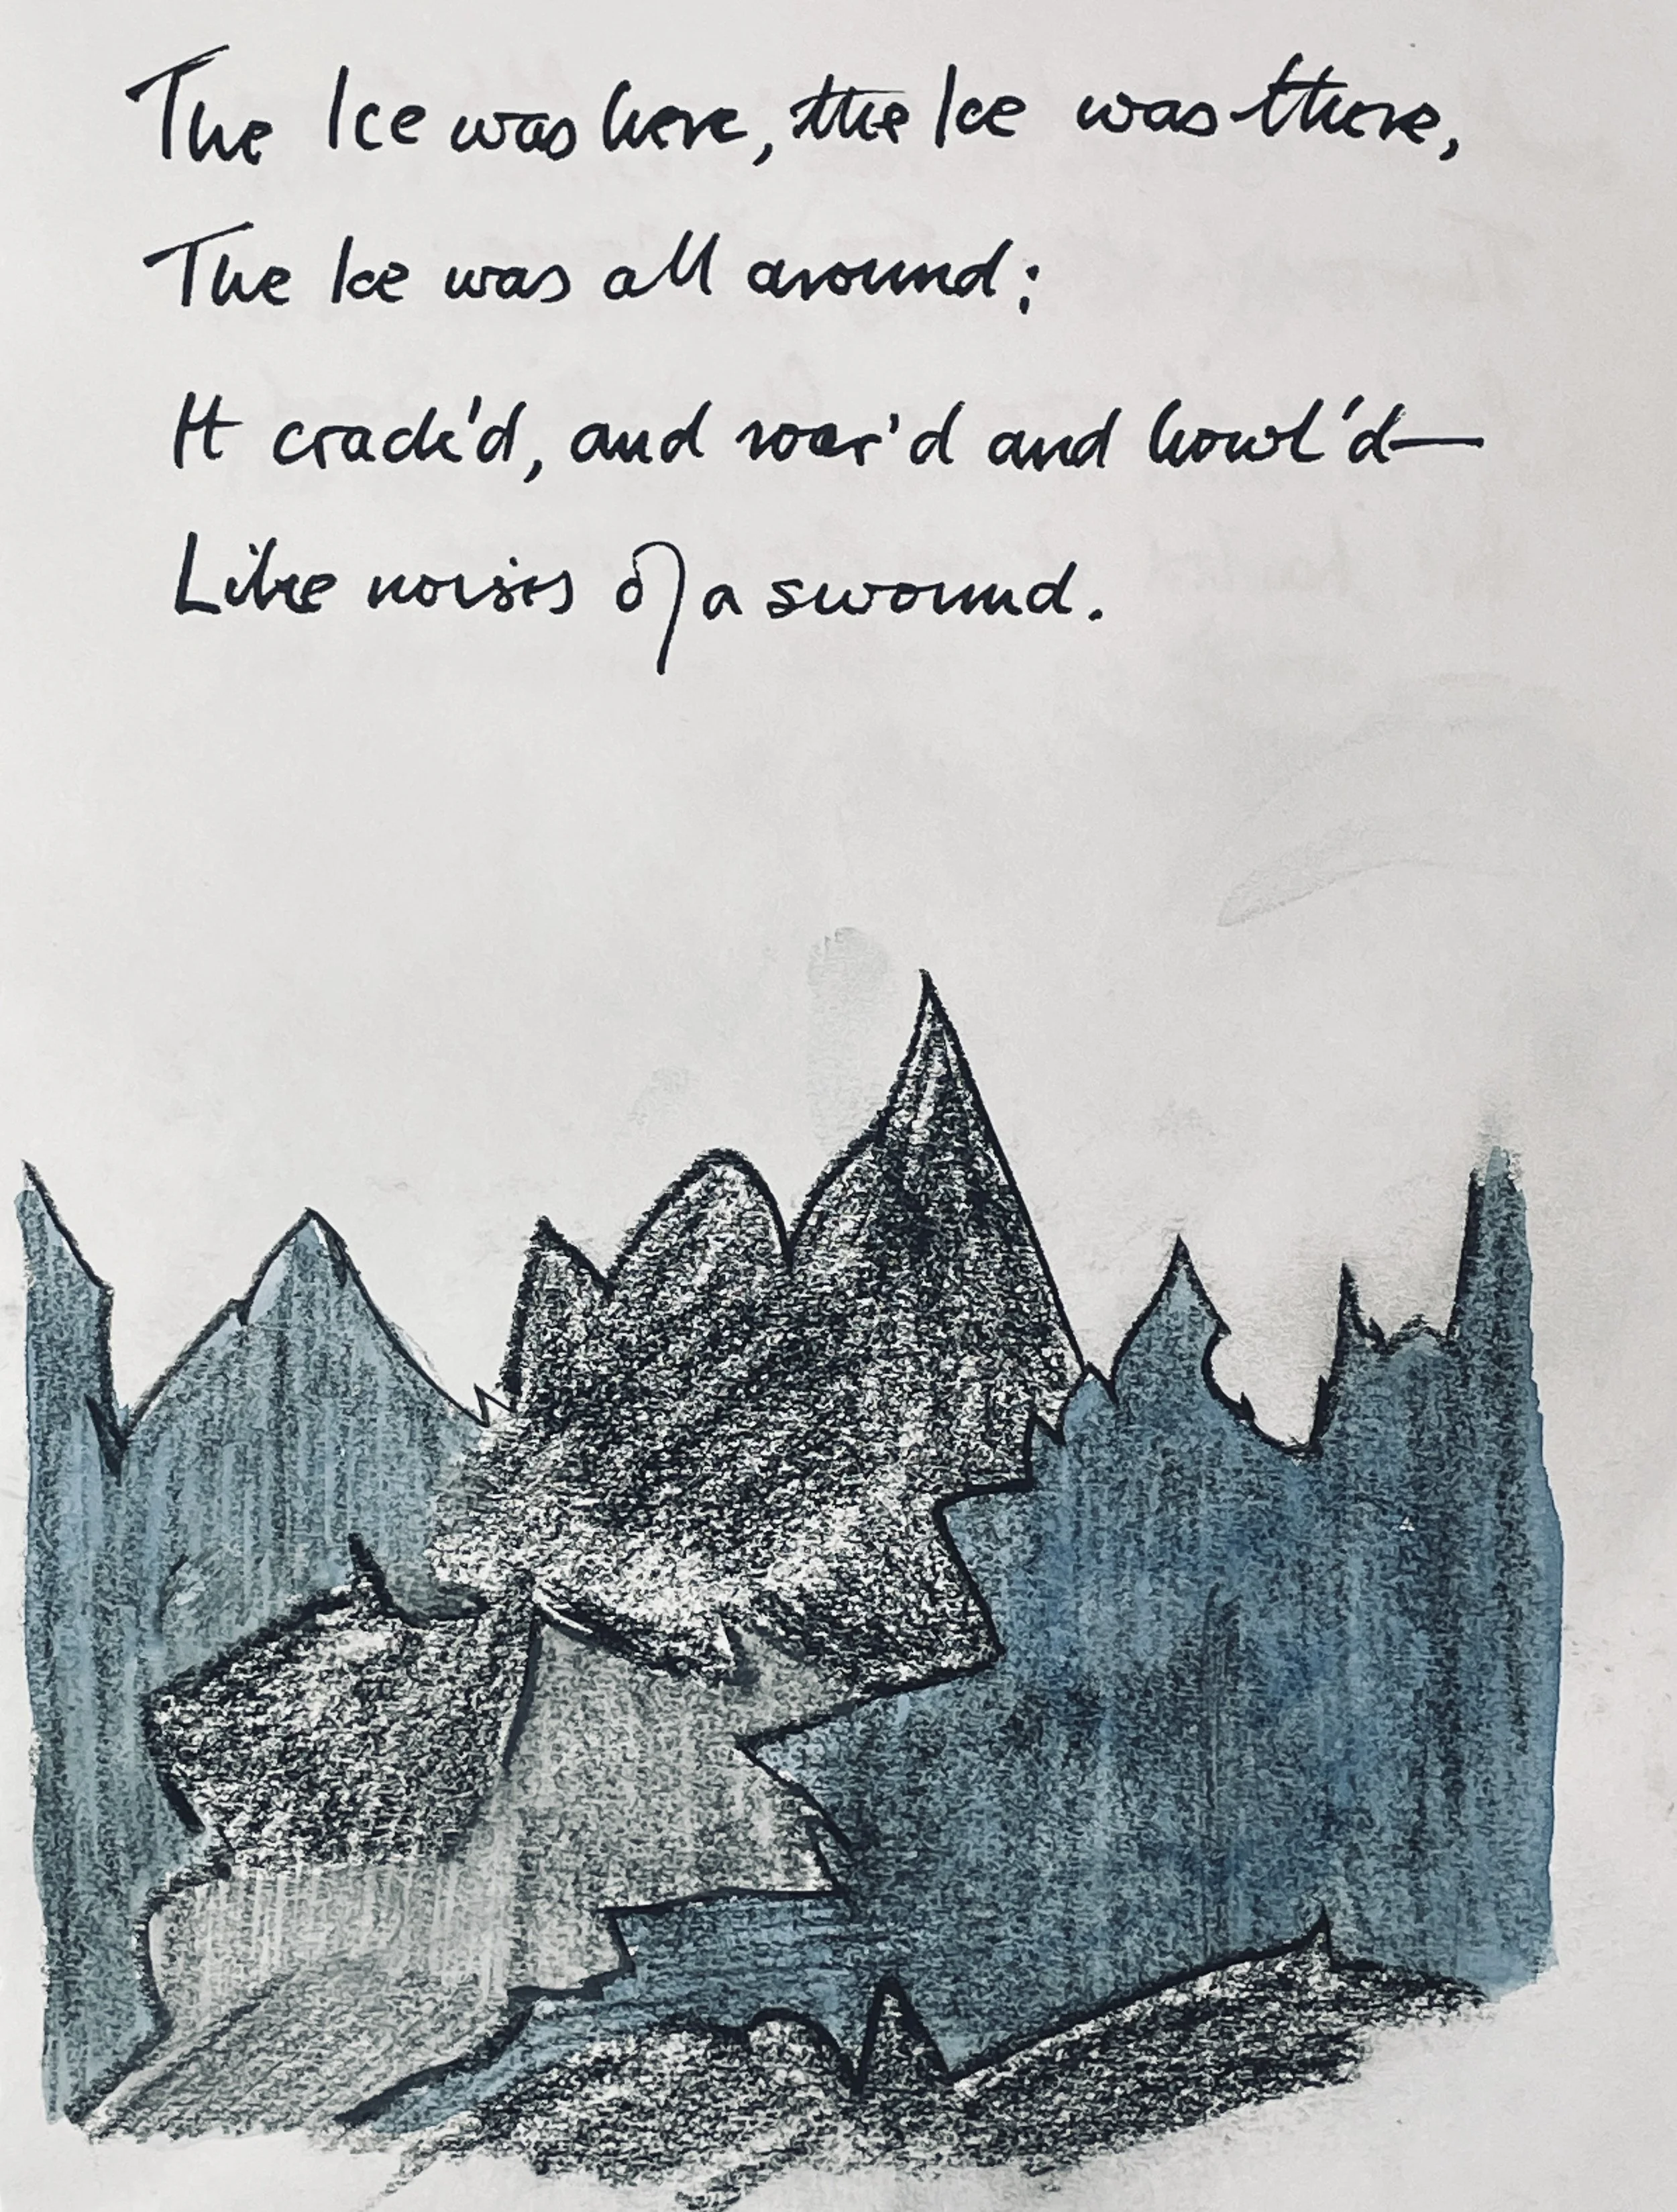 The Ice was here, the Ice was there,
The Ice was all around:
It crack'd, and roar'd and howl'd—
Like noises of a swound.